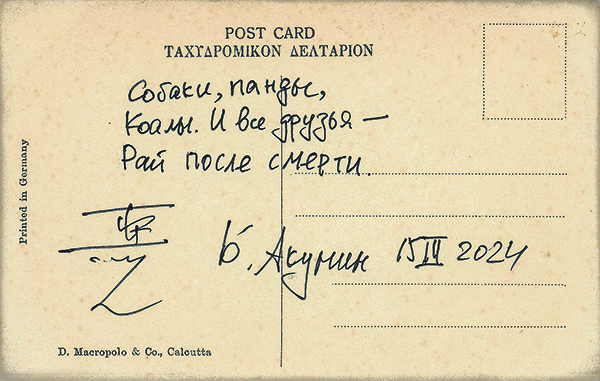 POST CARD
ΤΑΧΥΔΡΟΜΙΚΟΝ ΔΕΛΤΑΡΙΟΝ
Собаки, панды,
Коалы. И все друзья —
Рай после смерти.
Б. Акунин 15 IV 2024
Printed in Germany
D. Macropolo & Co., Calcutta